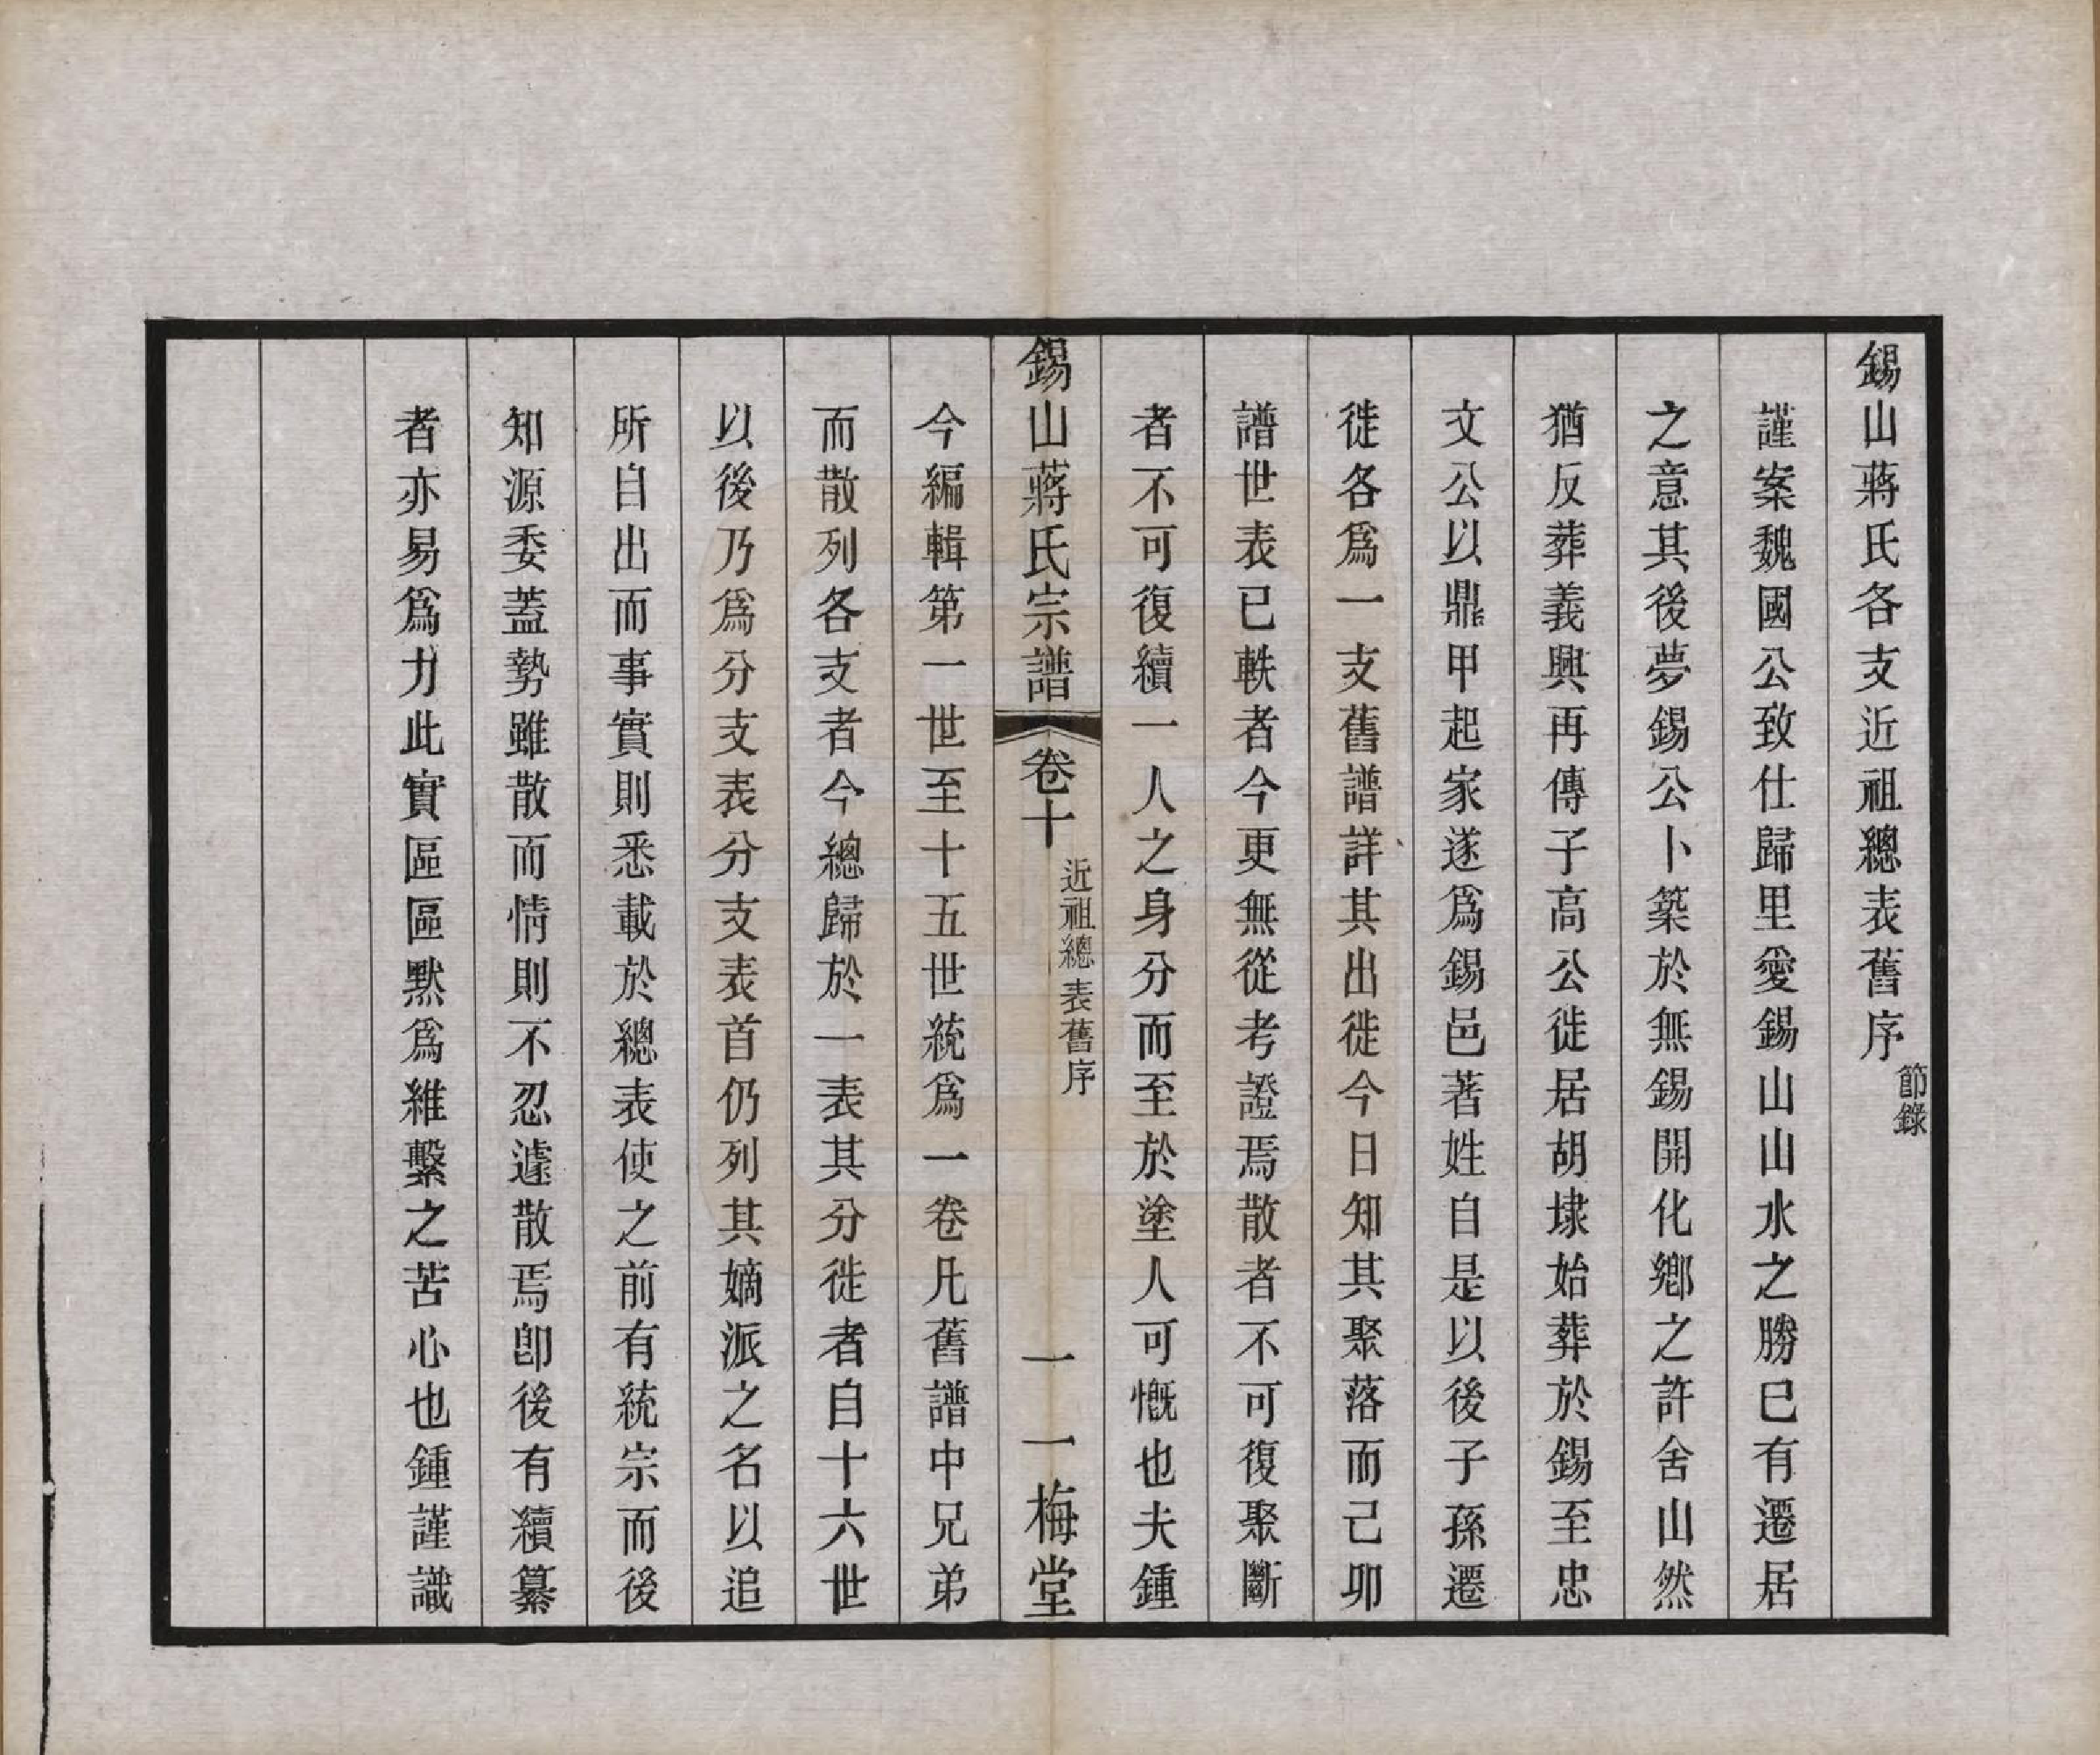 錫山蔣氏各支近祖總表舊序節錄
謹案魏國公致仕歸里愛錫山山水之勝已有遷居
之意其後夢錫公卜築於無錫開化鄉之許舍山然
猶反葬義興再傳子高公徙居胡埭始葬於錫至忠
文公以鼎甲起家遂爲錫邑著姓自是以後子孫遷
徙各爲一支舊譜詳其出徙今日知其聚落而己卯
譜世表已軼者今更無從考證焉散者不可復聚斷
者不可復續一人之身分而至於塗人可慨也夫鍾
錫山蔣氏宗譜
卷十
近祖總表舊序
一
一梅堂
今編輯第一世至十五世統爲一卷凡舊譜中兄弟
而散列各支者今總歸於一表其分徙者自十六世
以後乃爲分支表分支表首仍列其嫡派之名以追
所自出而事實則悉載於總表使之前有統宗而後
知源委蓋勢雖散而情則不忍遽散焉卽後有續纂
者亦易爲力此實區區默爲維繫之苦心也鍾謹識